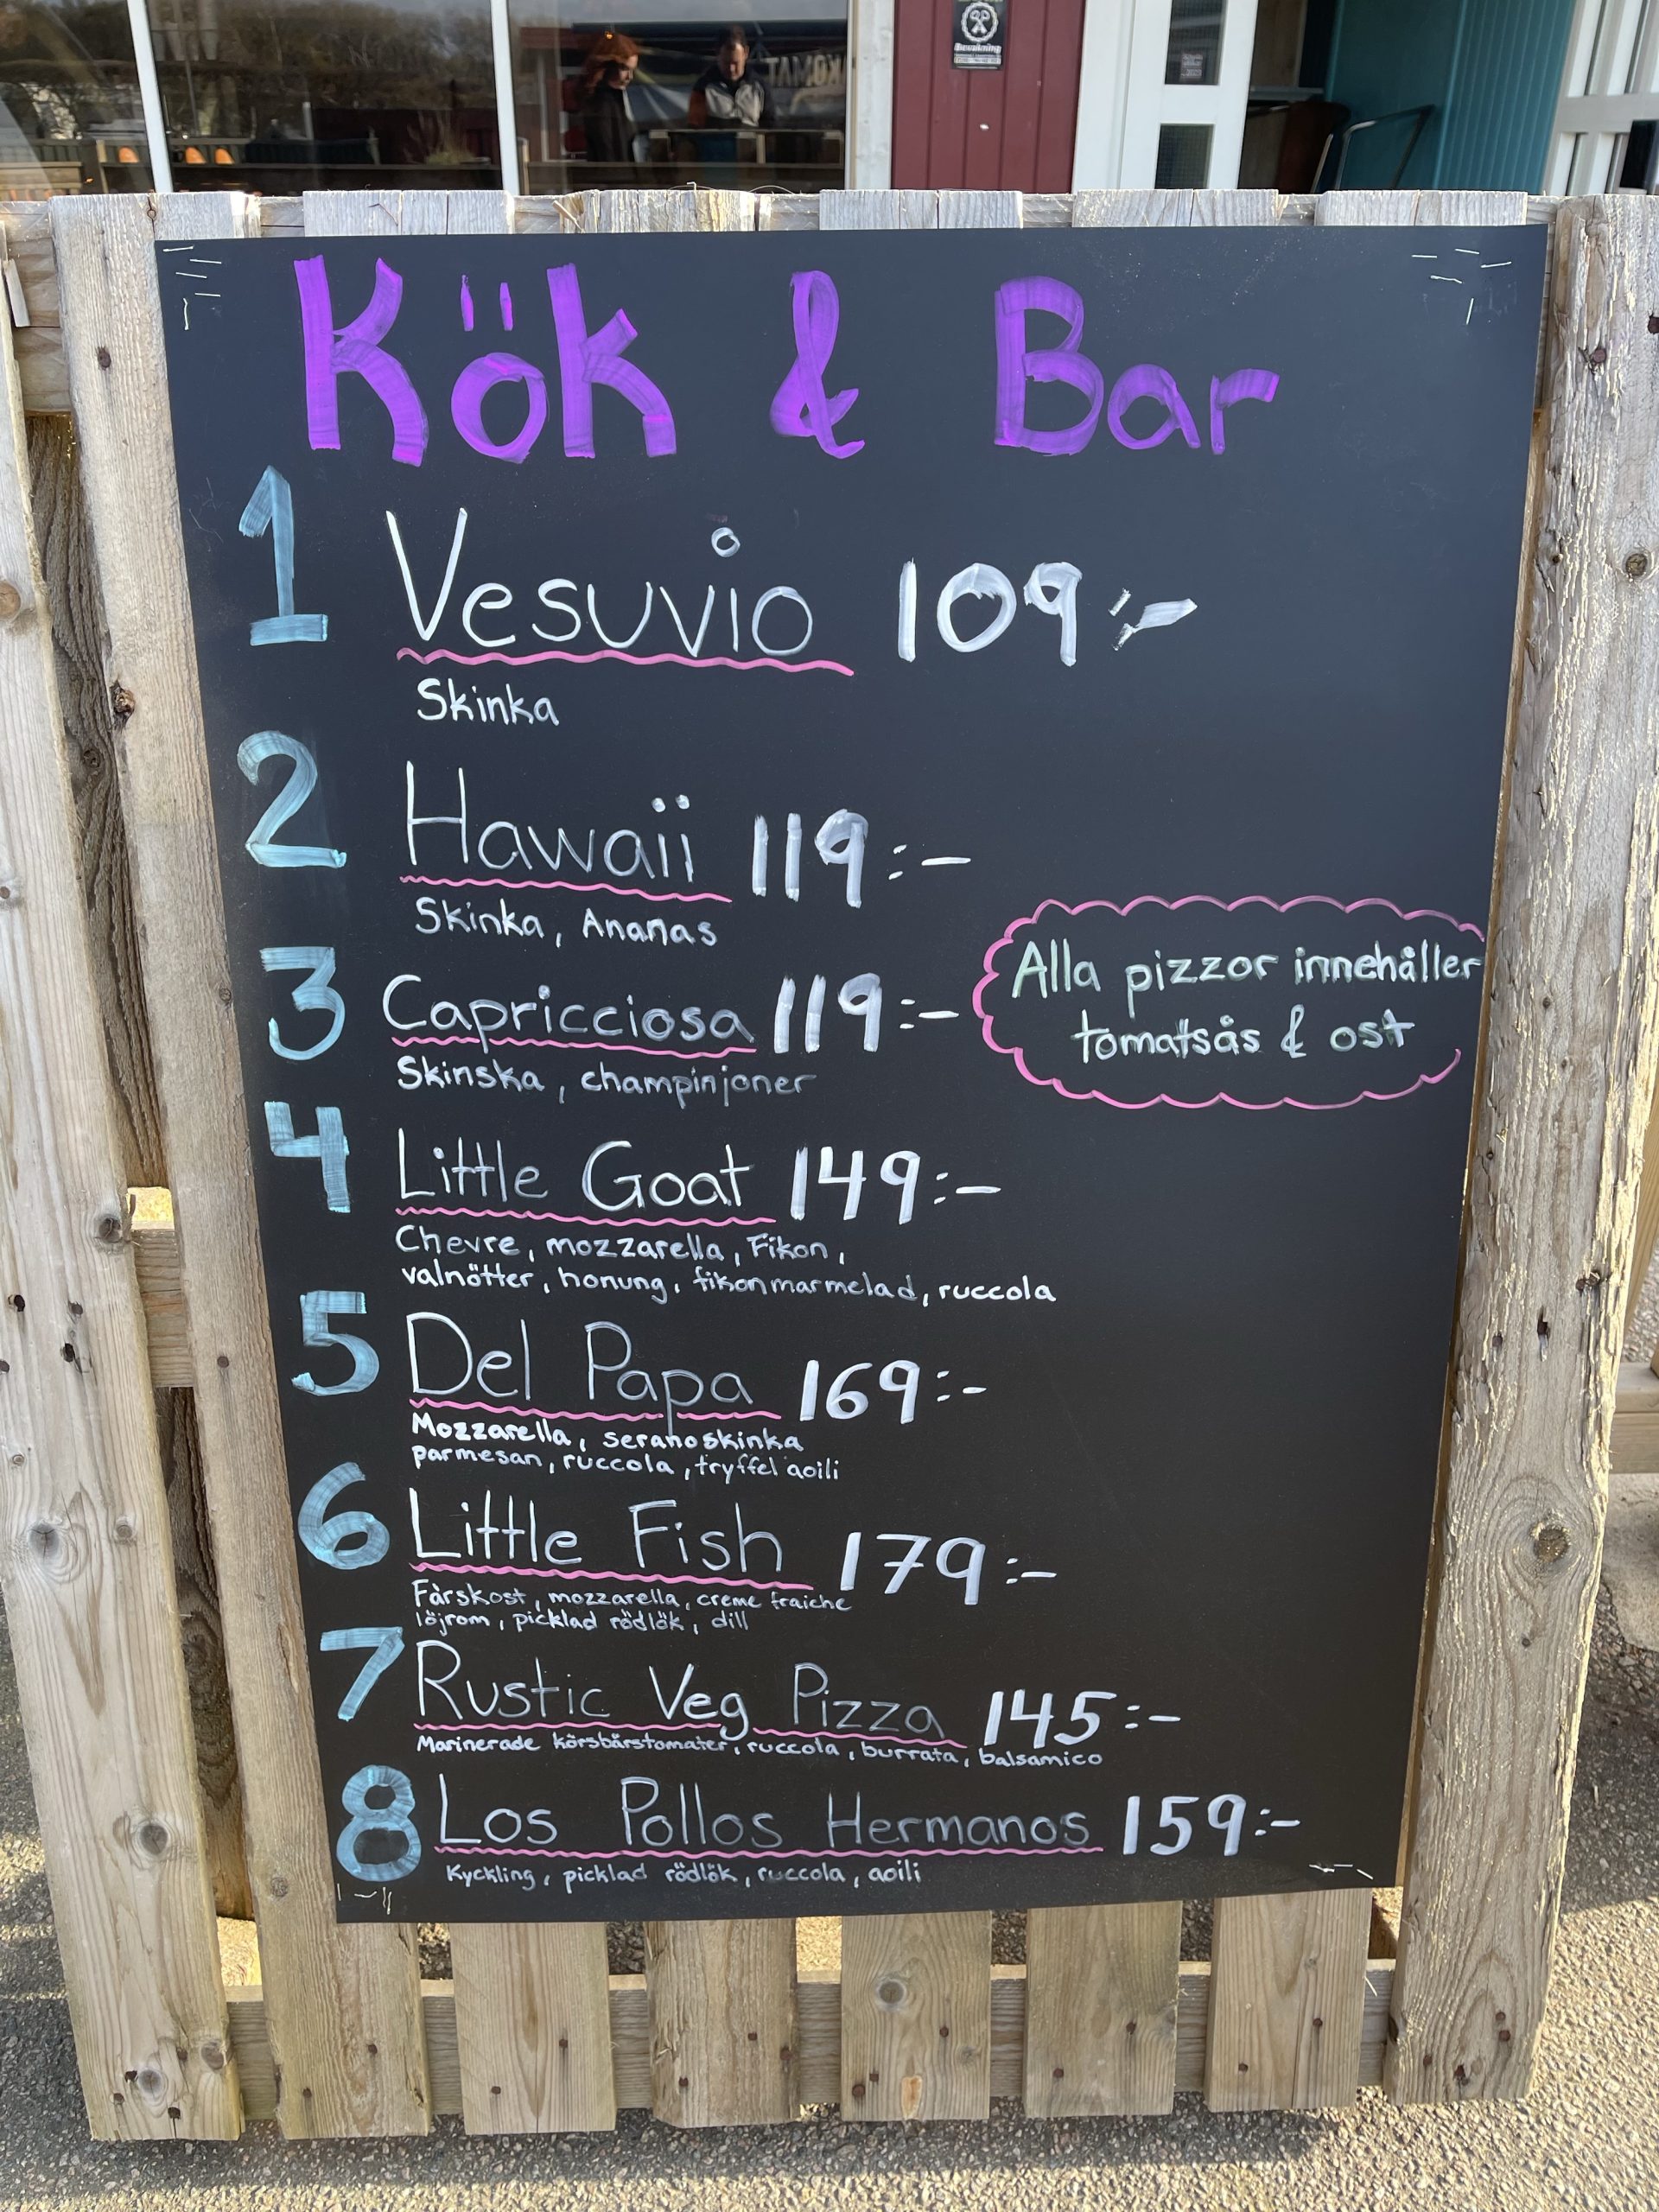 Bevakning
Kök & Bar
1 Vesuvio 109:-
Skinka
2 Hawaii 119:-
Skinka, Ananas
3 Capricciosa 119:-
Skinska, champinjoner
Alla pizzor innehåller
tomatsås & ost
4 Little Goat 149:-
Chevre, mozzarella, Fikon,
valnötter, honung, fikonmarmelad, ruccola
5 Del Papa 169:-
Mozzarella, seranoskinka
parmesan, ruccola, tryffel aoili
6 Little Fish 179:-
Färskost, mozzarella, creme fraiche
löjrom, picklad rödlök, dill
7 Rustic Veg Pizza 145:-
Marinerade körsbärstomater, ruccola, burrata, balsamico
8 Los Pollos Hermanos 159:-
Kyckling, picklad rödlök, ruccola, aoili